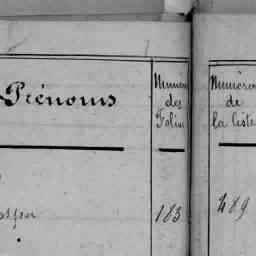 Prénoms
Numéros
des
Folios
Numéros
de
la liste
183
489